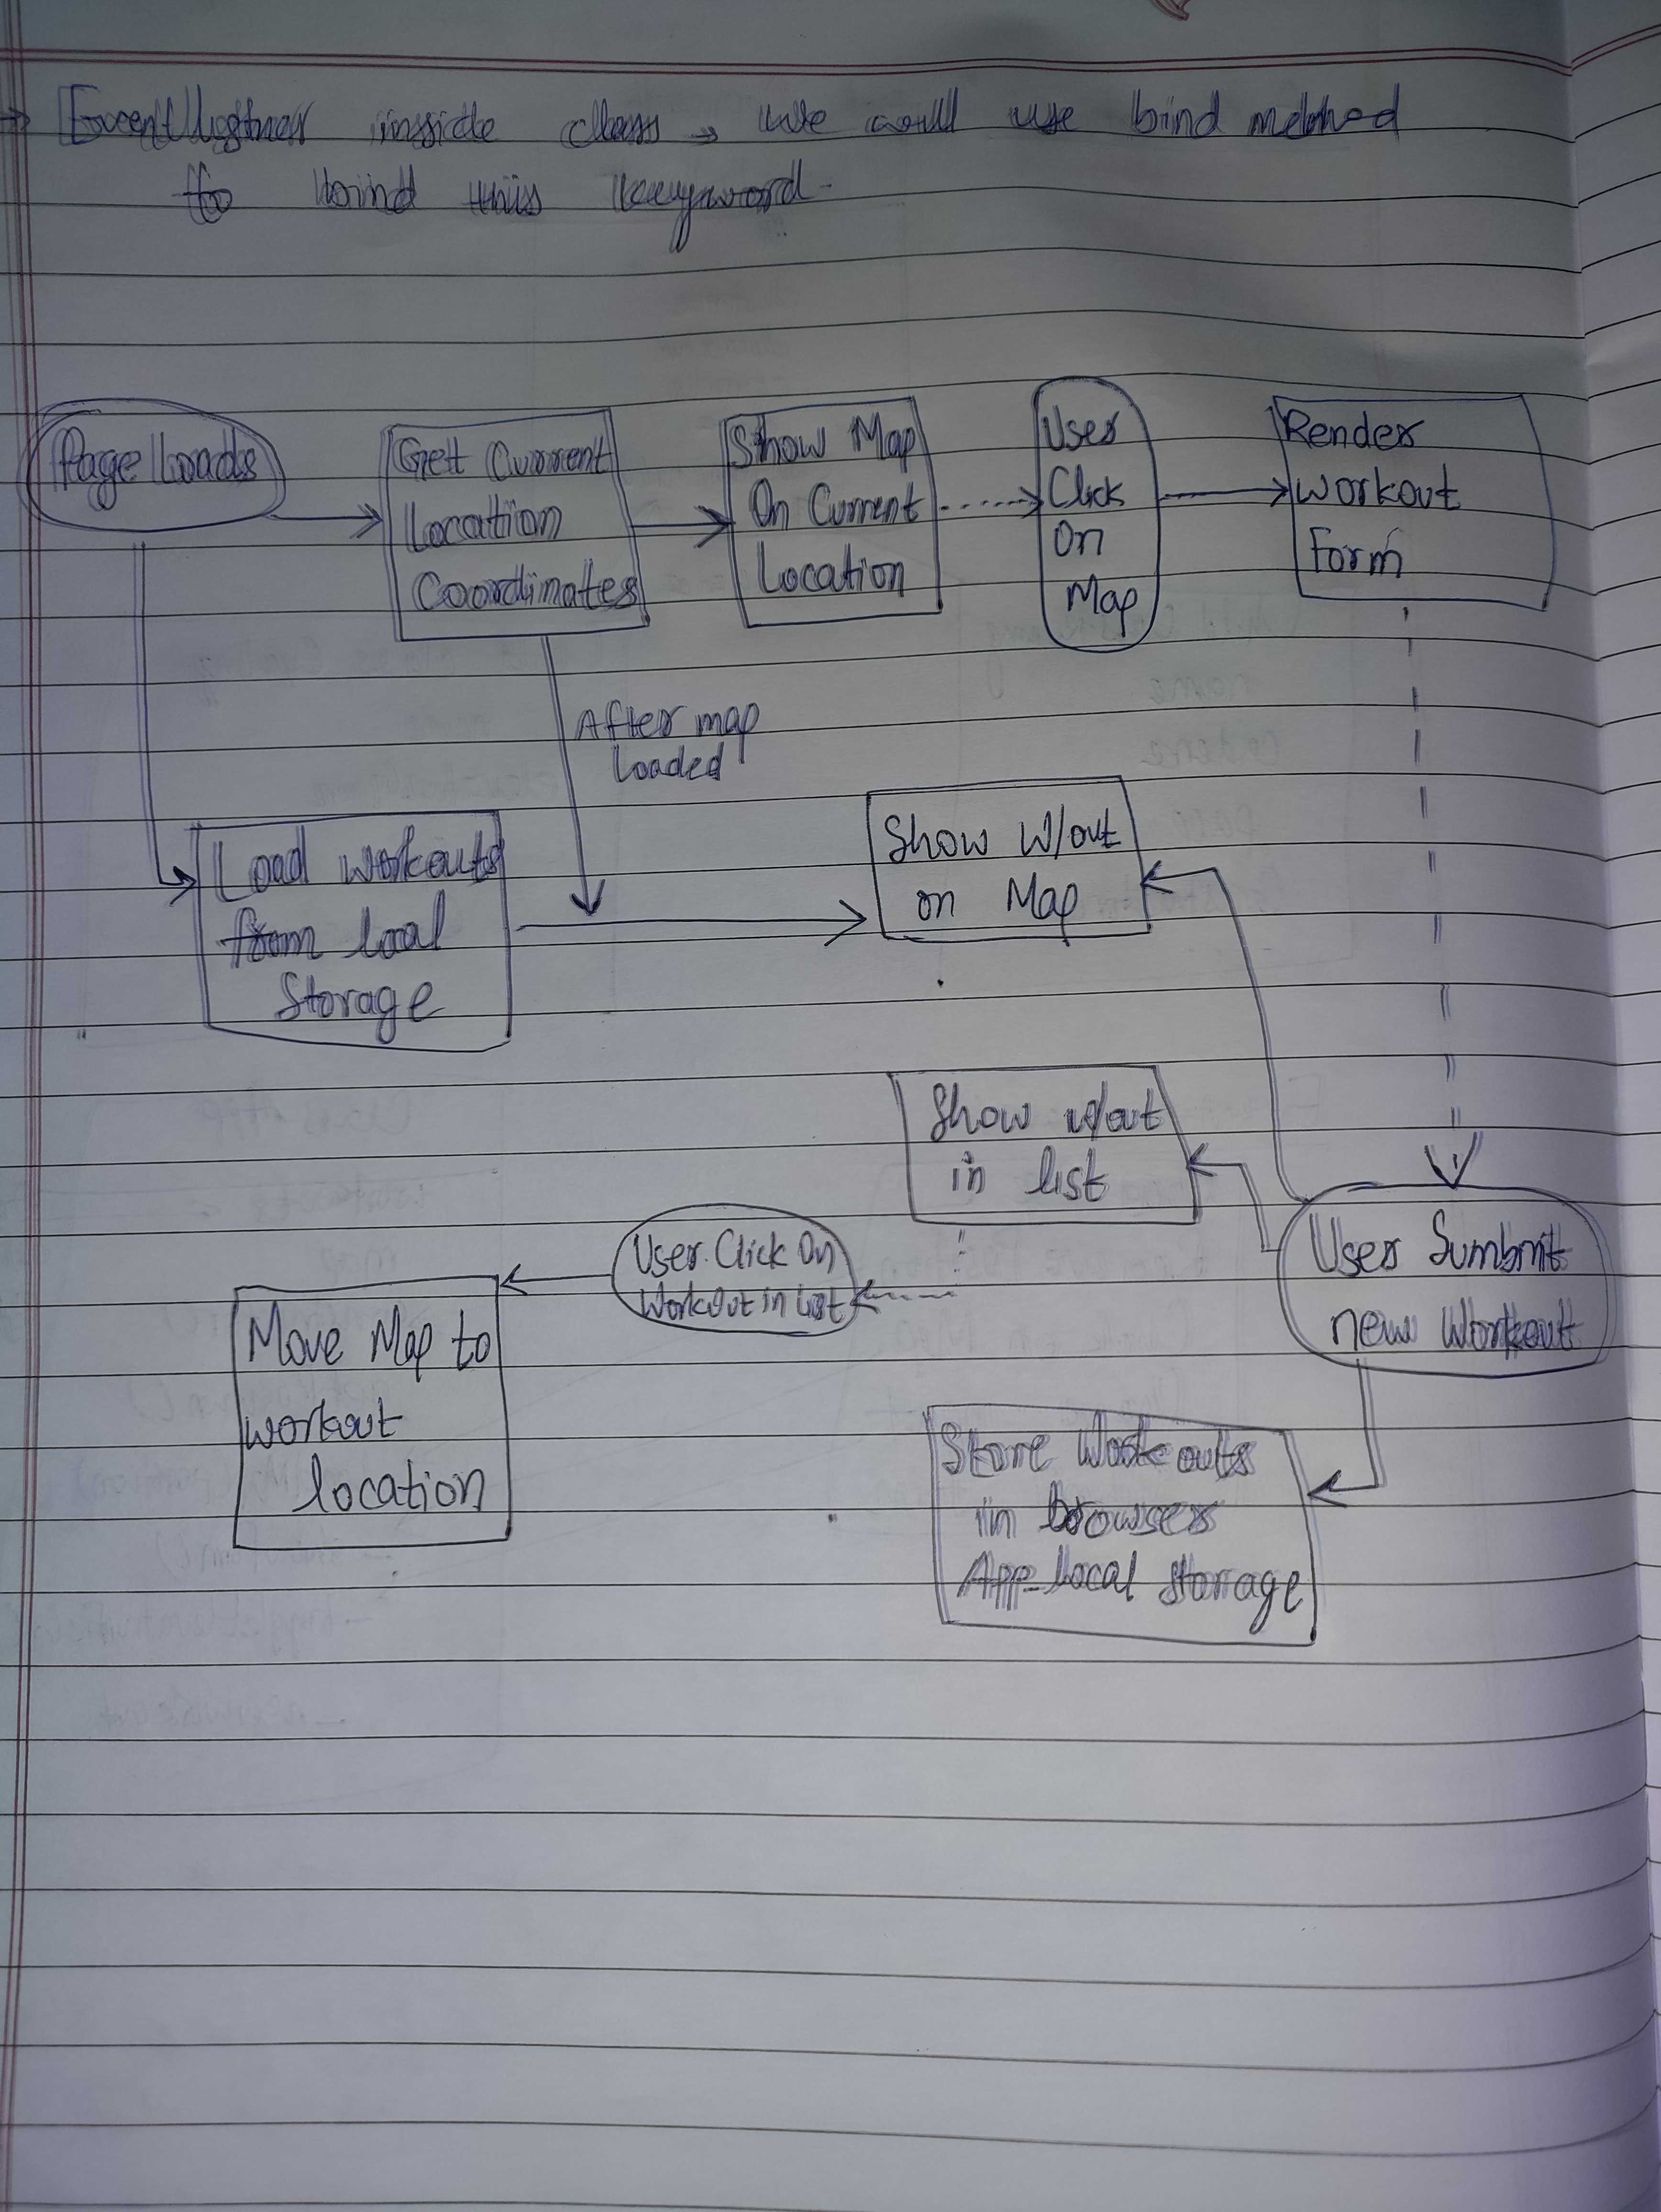 → Eventlistner inside class, we will use bind method
to bind this keyword.
Page Loads
Get Current
Location
Coordinates
Show Map
On Current
Location
User
Click
On
Map
Render
Workout
Form
After map
loaded
Load workouts
from local
Storage
Show W/out
on Map
Show w/out
in list
User Click On
Workout in list
User Sumbmit
new Workout
Move Map to
workout
location
Store Workouts
in browsers
App local storage